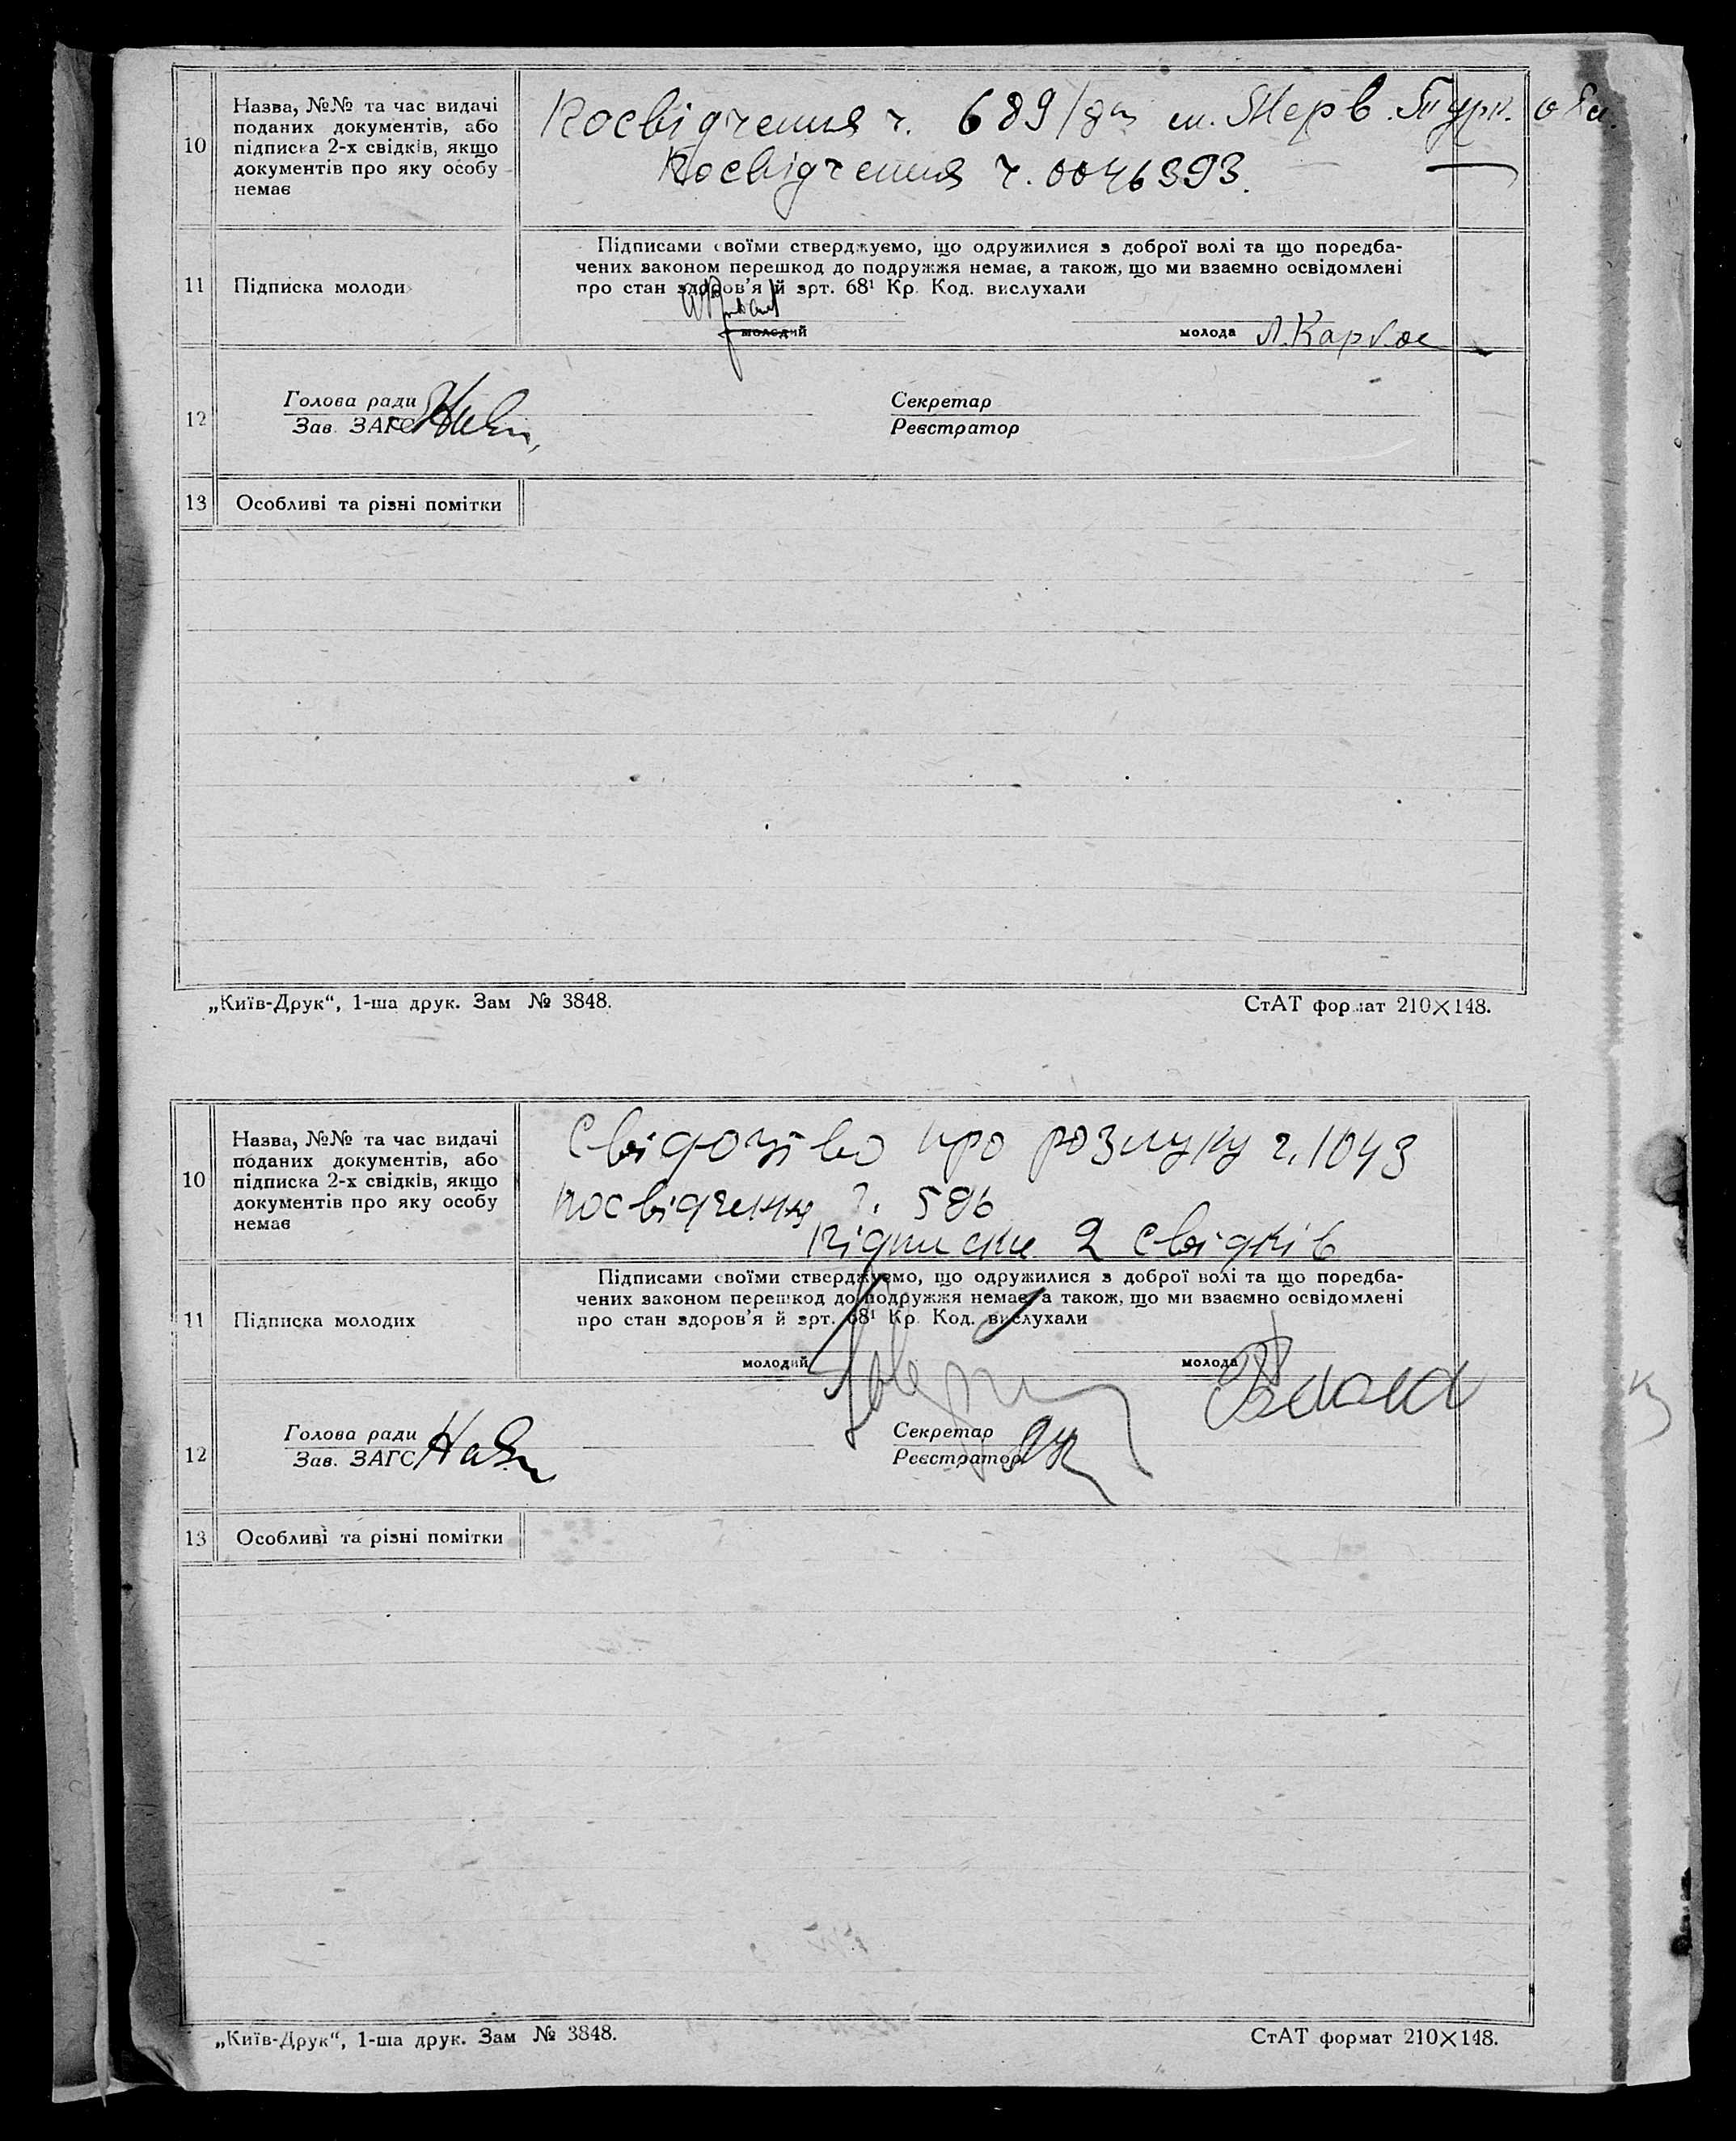 10
Назва, №№ та час видачі
поданих документів, або
підписка 2-х свідків, якщо
документів про яку особу
немає
Посвідчення ч. 689/ м. Мерв. Турк. обл.
Посвідчення ч. 0046393.
11
Підписка молоди
Підписами своїми стверджуємо, що одружилися з доброї волі та що поредба-
чених законом перешкод до подружжя немає, а також, що ми взаємно освідомлені
про стан здоров'я й зрт. 68¹ Кр. Код. вислухали
молодий
молода
12
Голова ради
Зав. ЗАГС
Секретар
Реєстратор
13
Особливі та різні помітки
„Київ-Друк“, 1-ша друк. Зам № 3848.
СтАТ формат 210×148.
10
Назва, №№ та час видачі
поданих документів, або
підписка 2-х свідків, якщо
документів про яку особу
немає
Свідоцтво про розлуку ч. 1043
посвідчення ч. 586
підписка 2 свідків
11
Підписка молодих
Підписами своїми стверджуємо, що одружилися з доброї волі та що поредба-
чених законом перешкод до подружжя немає, а також, що ми взаємно освідомлені
про стан здоров'я й зрт. 68¹ Кр. Код. вислухали
молодий
молода
12
Голова ради
Зав. ЗАГС
Секретар
Реєстратор
13
Особливі та різні помітки
„Київ-Друк“, 1-ша друк. Зам № 3848.
СтАТ формат 210×148.